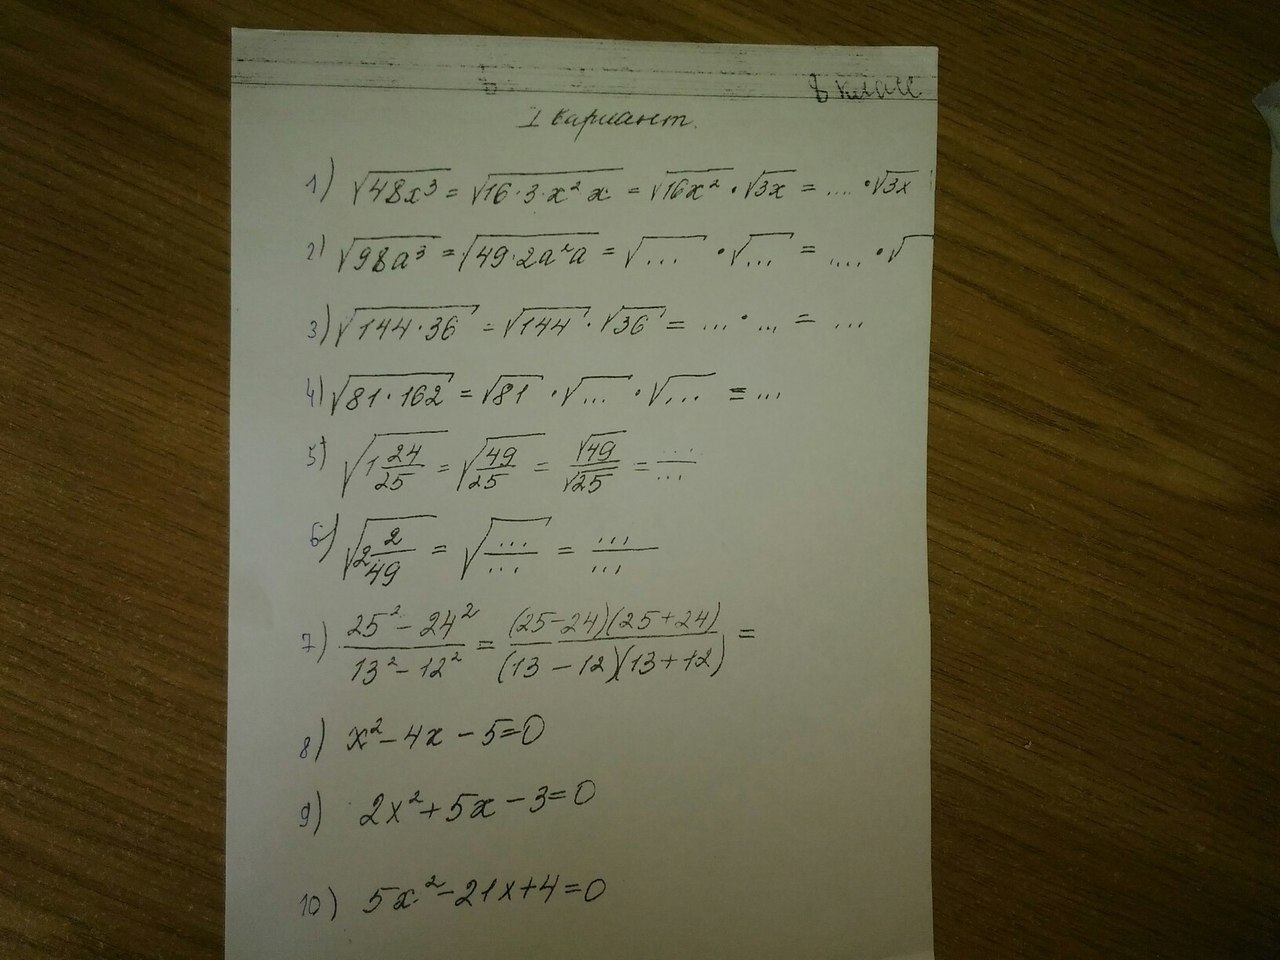 8 класс
I вариант.
1) √48x³ = √16·3·x²x = √16x² · √3x = .... · √3x
2) √98a³ = √49·2a²a = √... · √... = .... · √
3) √144·36 = √144 · √36 = ... · ... = ...
4) √81·162 = √81 · √... · √... = ...
5) √1 24/25 = √49/25 = √49/√25 = .../...
6) √2 2/49 = √.../... = .../...
7) 25² - 24² / 13² - 12² = (25-24)(25+24) / (13-12)(13+12) =
8) x² - 4x - 5 = 0
9) 2x² + 5x - 3 = 0
10) 5x² - 21x + 4 = 0